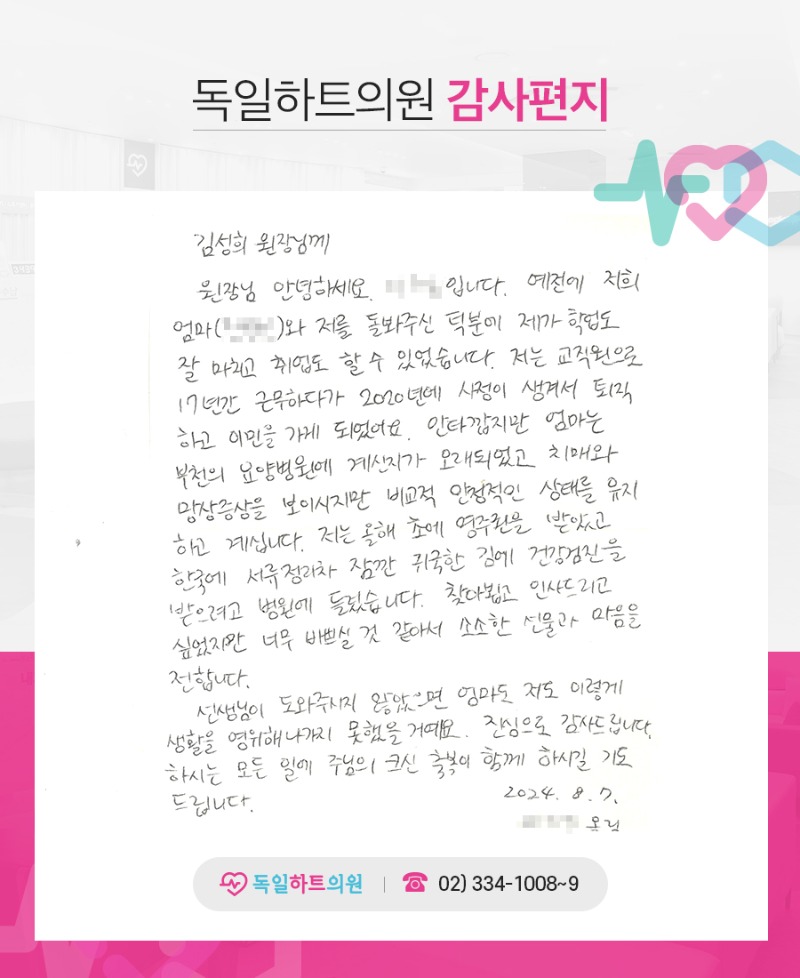 독일하트의원 감사편지
김성희 원장님께
원장님 안녕하세요. 입니다. 예전에 저희
엄마( )와 저를 돌봐주신 덕분에 제가 학업도
잘 마치고 취업도 할 수 있었습니다. 저는 교직원으로
17년간 근무하다가 2020년에 사정이 생겨서 퇴직
하고 이민을 가게 되었어요. 안타깝지만 엄마는
부천의 요양병원에 계신지가 오래되었고 치매와
망상증상을 보이시지만 비교적 안정적인 상태를 유지
하고 계십니다. 저는 올해 초에 영주권을 받았고
한국에 서류정리차 잠깐 귀국한 김에 건강검진을
받으려고 병원에 들렀습니다. 찾아뵙고 인사드리고
싶었지만 너무 바쁘실 것 같아서 소소한 선물과 마음을
전합니다.
선생님이 도와주시지 않았으면 엄마도 저도 이렇게
생활을 영위해나가지 못했을 거예요. 진심으로 감사드립니다.
하시는 모든 일에 주님의 크신 축복이 함께 하시길 기도
드립니다.
2024. 8. 7.
올림
독일하트의원 | 02) 334-1008~9